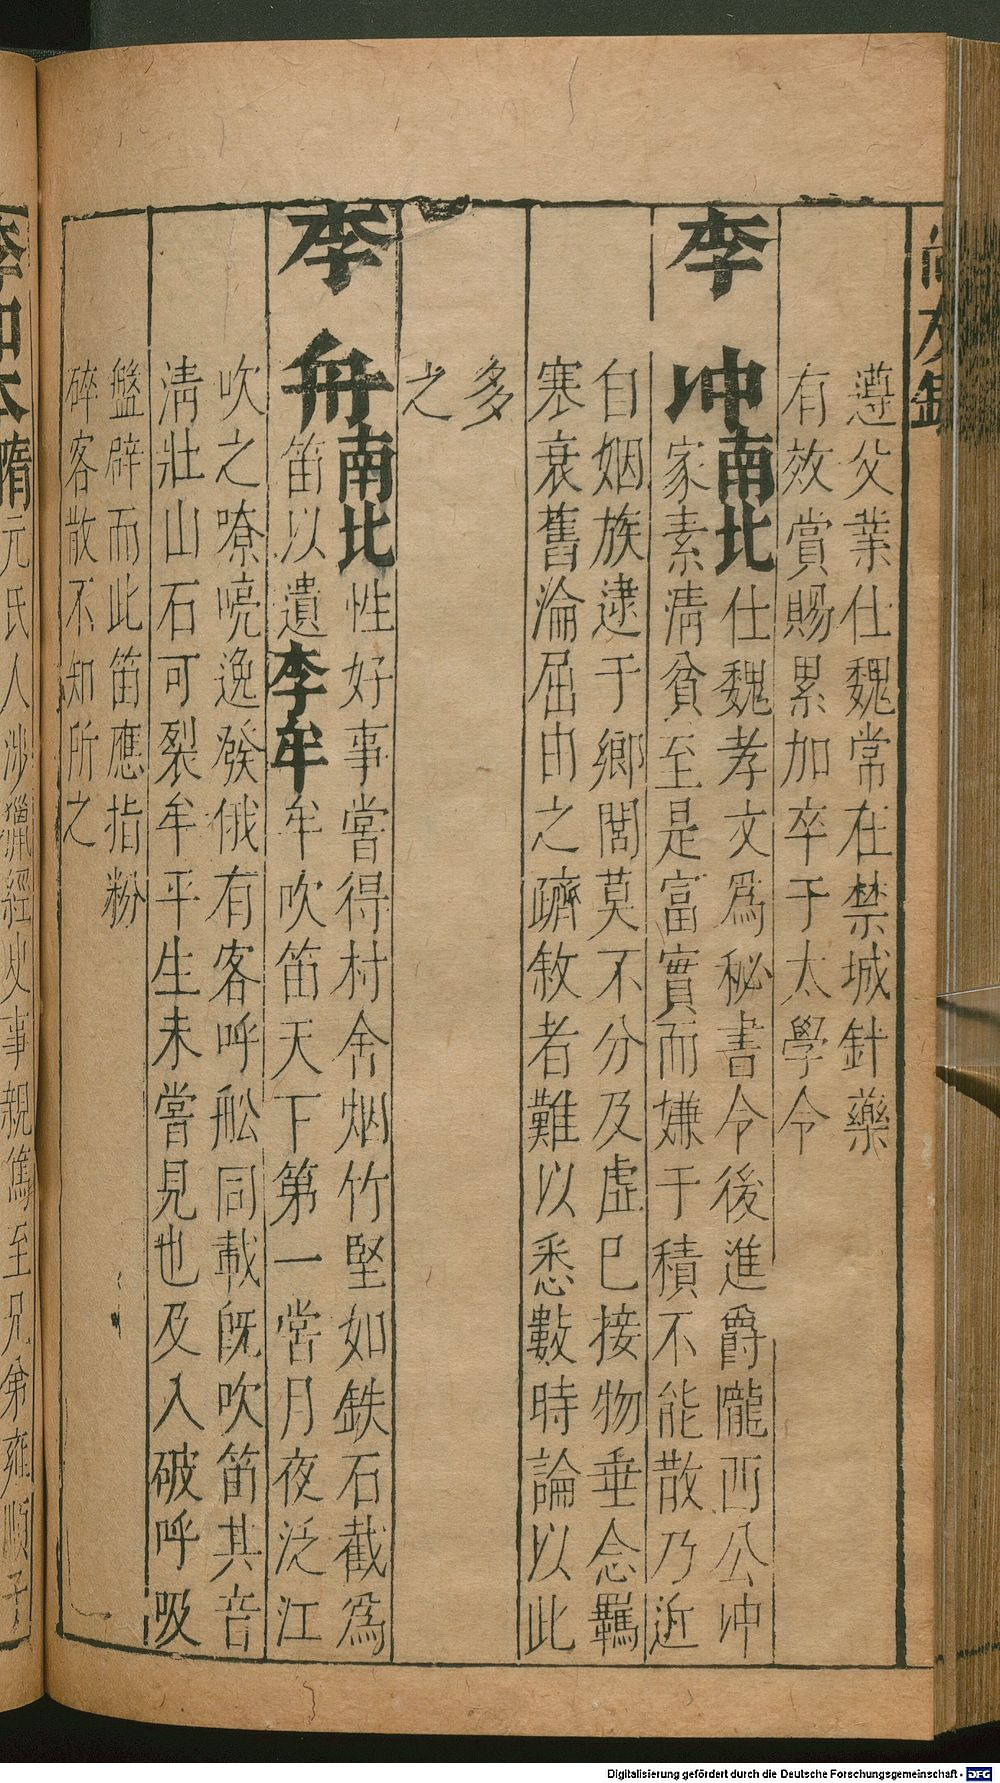 尚友錄
遵父業仕魏常在禁城針藥
有效賞賜累加卒于太學令
李冲南北仕魏孝文爲秘書令後進爵隴西公冲
家素淸貧至是富實而嫌于積不能散乃近
自姻族逮于鄉閭莫不分及虛巳接物垂念羈
寒衰舊淪屈由之躋敘者難以悉數時論以此
多
之
李舟南北性好事嘗得村舍烟竹堅如鉄石截爲
笛以遺李牟牟吹笛天下第一嘗月夜泛江
吹之嘹喨逸發俄有客呼舩同載旣吹笛其音
淸壯山石可裂牟平生未嘗見也及入破呼吸
盤辟而此笛應指粉
碎客散不知所之
李知本隋元氏人涉獵經史事親篤至兄弟雍順子
Digitalisierung gefördert durch die Deutsche Forschungsgemeinschaft - DFG